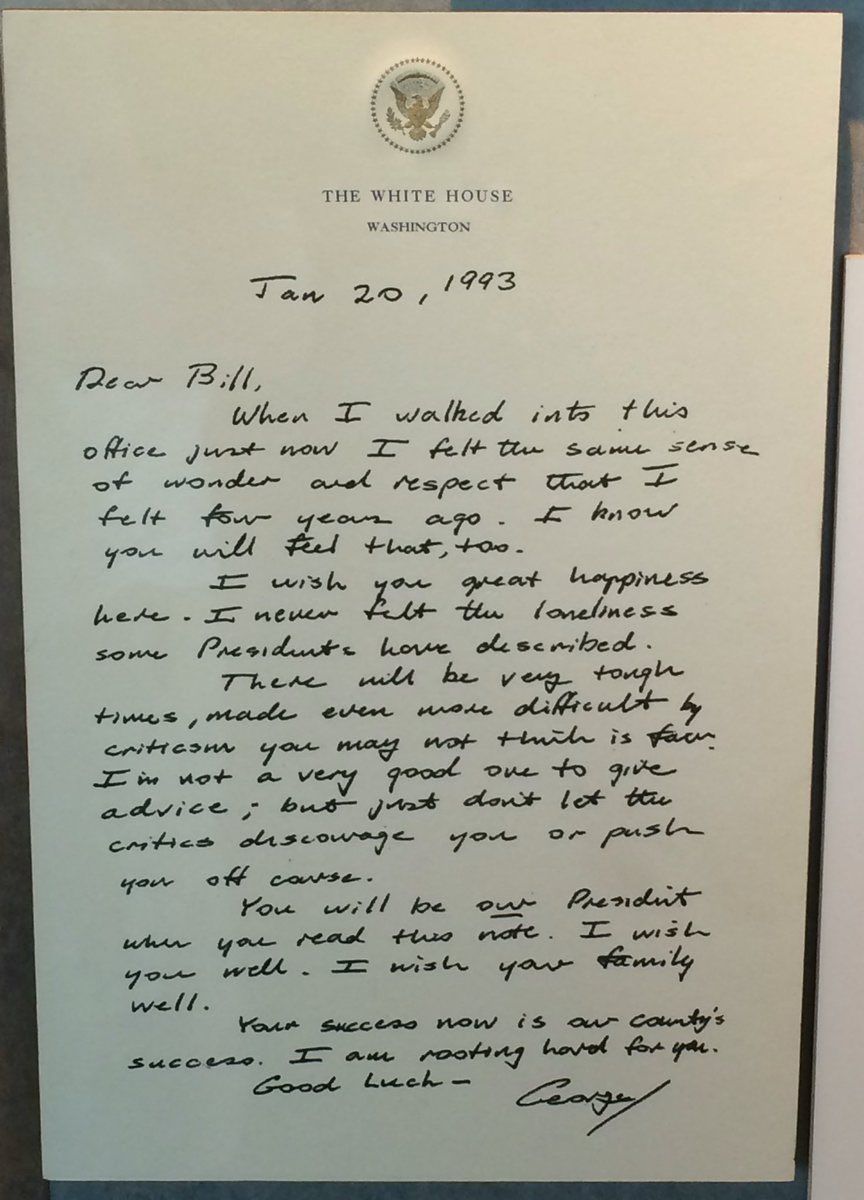 THE WHITE HOUSE
WASHINGTON
Jan 20, 1993
Dear Bill,
When I walked into this
office just now I felt the same sense
of wonder and respect that I
felt four years ago. I know
you will feel that, too.
I wish you great happiness
here. I never felt the loneliness
some Presidents have described.
There will be very tough
times, made even more difficult by
criticism you may not think is fair.
I'm not a very good one to give
advice; but just don't let the
critics discourage you or push
you off course.
You will be our President
when you read this note. I wish
you well. I wish your family
well.
Your success now is our county's
success. I am rooting hard for you.
Good Luck -
George